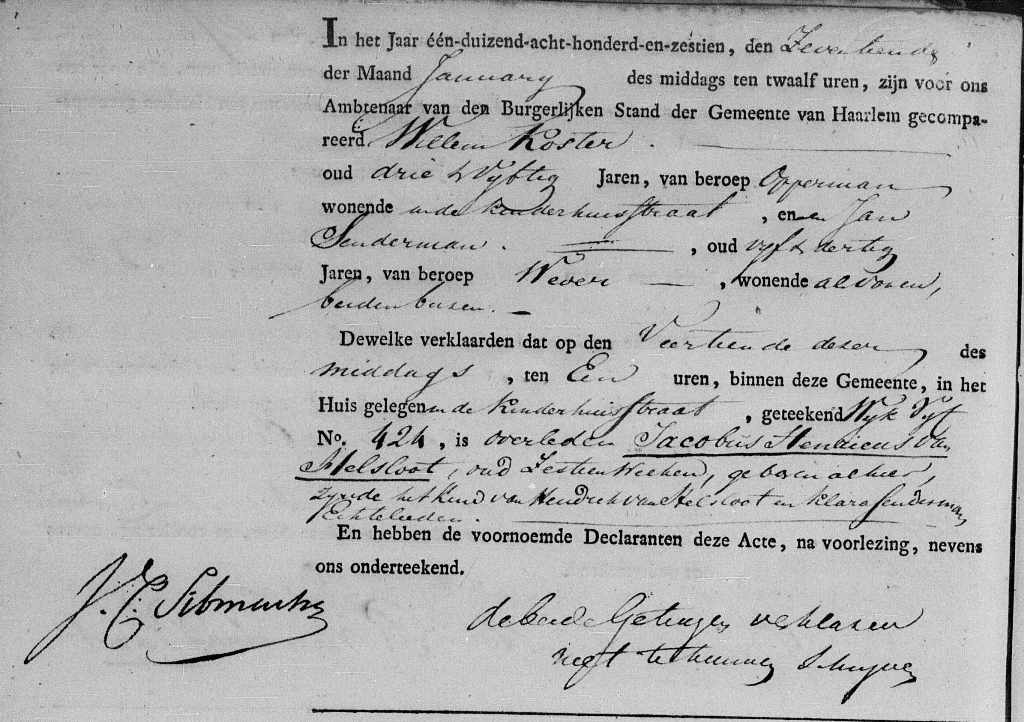 In het Jaar één-duizend-acht-honderd-en-zestien, den Zeventiende
der Maand January des middags ten twaalf uren, zijn voor ons
Ambtenaar van den Burgerlijken Stand der Gemeente van Haarlem gecompa-
reerd Willem Koster.
oud drie & Vyftig Jaren, van beroep Opperman
wonende in de Kinderhuisstraat, en Jan
Senderman. , oud vyf & dertig
Jaren, van beroep Wever , wonende als voren,
beiden buren.
Dewelke verklaarden dat op den Veertiende dezer des
middags , ten Een uren, binnen deze Gemeente, in het
Huis gelegen in de Kinderhuisstraat , geteekend Wyk Vyf
No. 424, is overleden Jacobus Hendricus van
Helsloot, oud Zestien Weeken, geboren alhier,
zynde het Kind van Hendrik van Helsloot en Klara Senderman,
Echtelieden.
En hebben de voornoemde Declaranten deze Acte, na voorlezing, nevens
ons onderteekend.
de beide Getuigen verklaren
niet te kunnen Schryven
J. C.